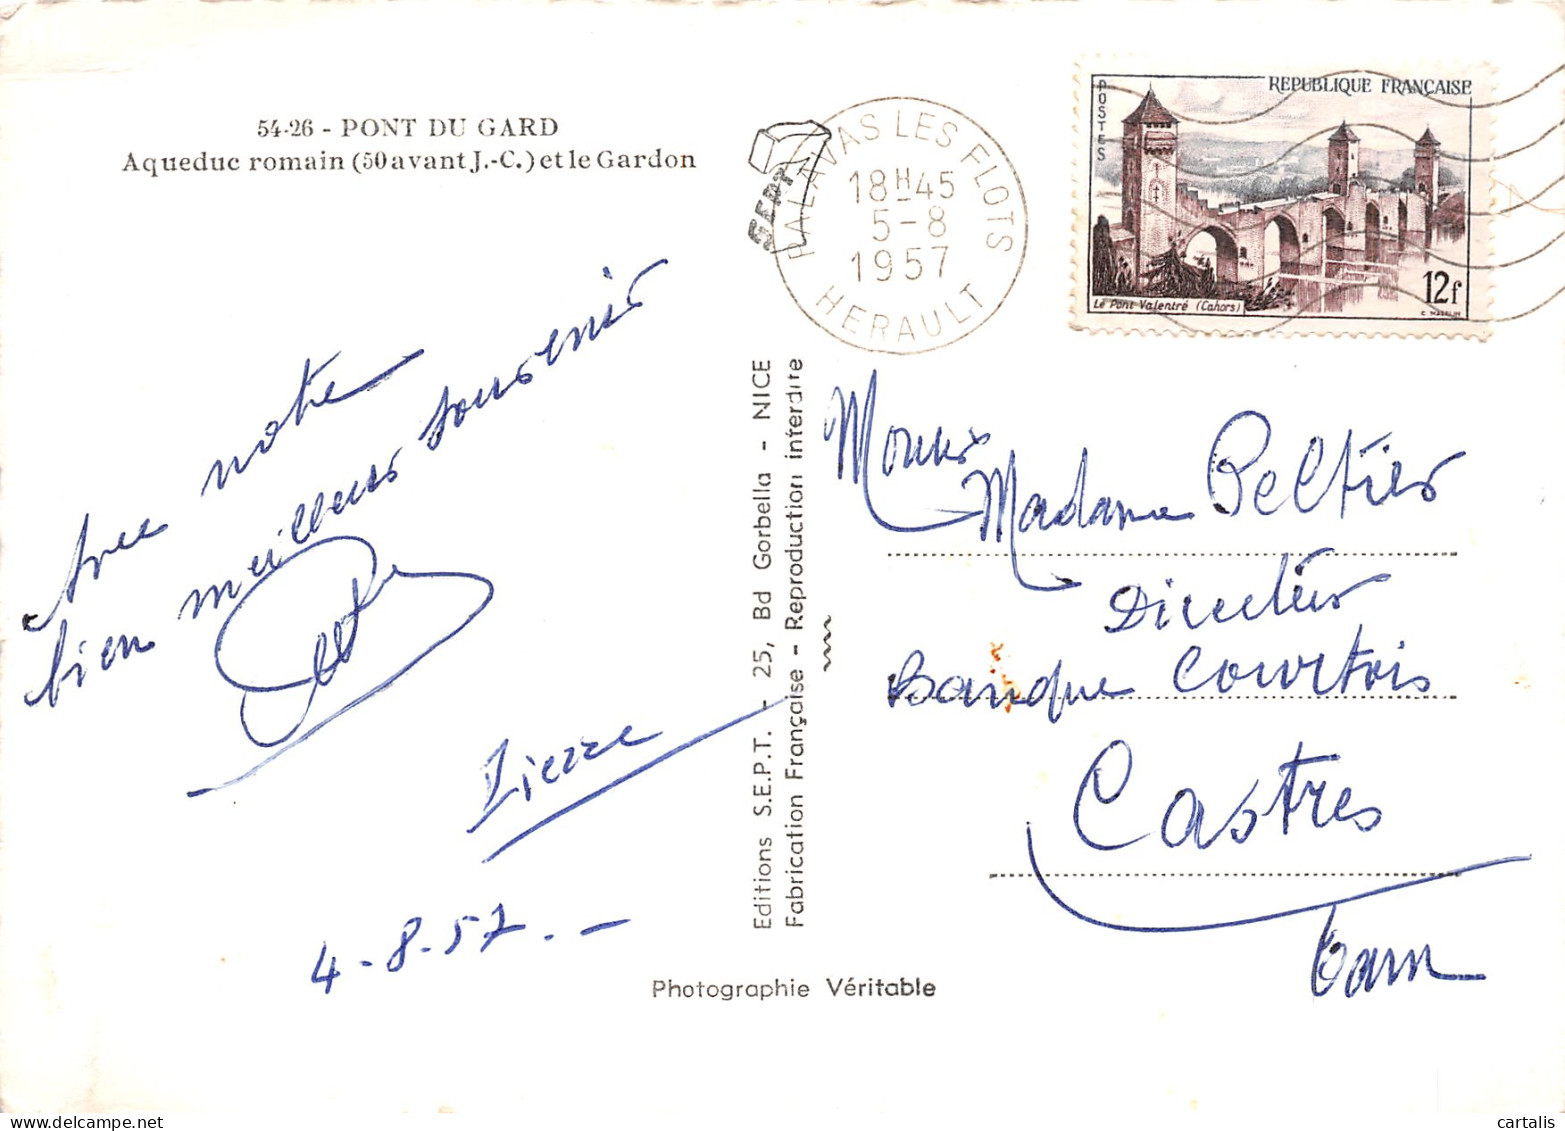 54-26 - PONT DU GARD
Aqueduc romain (50 avant J.-C.) et le Gardon
Avec notre
bien meilleurs souvenir
Pierre
4-8-57.-
Editions S.E.P.T. - 25, Bd Gorbella - NICE
Fabrication Française - Reproduction interdite
Photographie Véritable
SEPT
PALAVAS LES FLOTS
18H45
5-8
1957
HERAULT
REPUBLIQUE FRANÇAISE
POSTES
12f
Le Pont Valentré (Cahors)
C. MAZELIN
Madame Peltier
Directeur
Banque Courtois
Castres
Tarn
cartalis